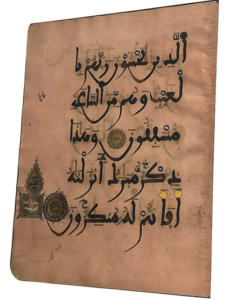 الَّذِينَ يَخْشَوْنَ رَبَّهُم بِا
لْغَيْبِ وَهُم مِّنَ السَّاعَةِ
مُشْفِقُونَ وَهَٰذَا
ذِكْرٌ مُّبَٰرَكٌ أَنزَلْنَٰهُ
أَفَأَنتُمْ لَهُ مُنكِرُونَ